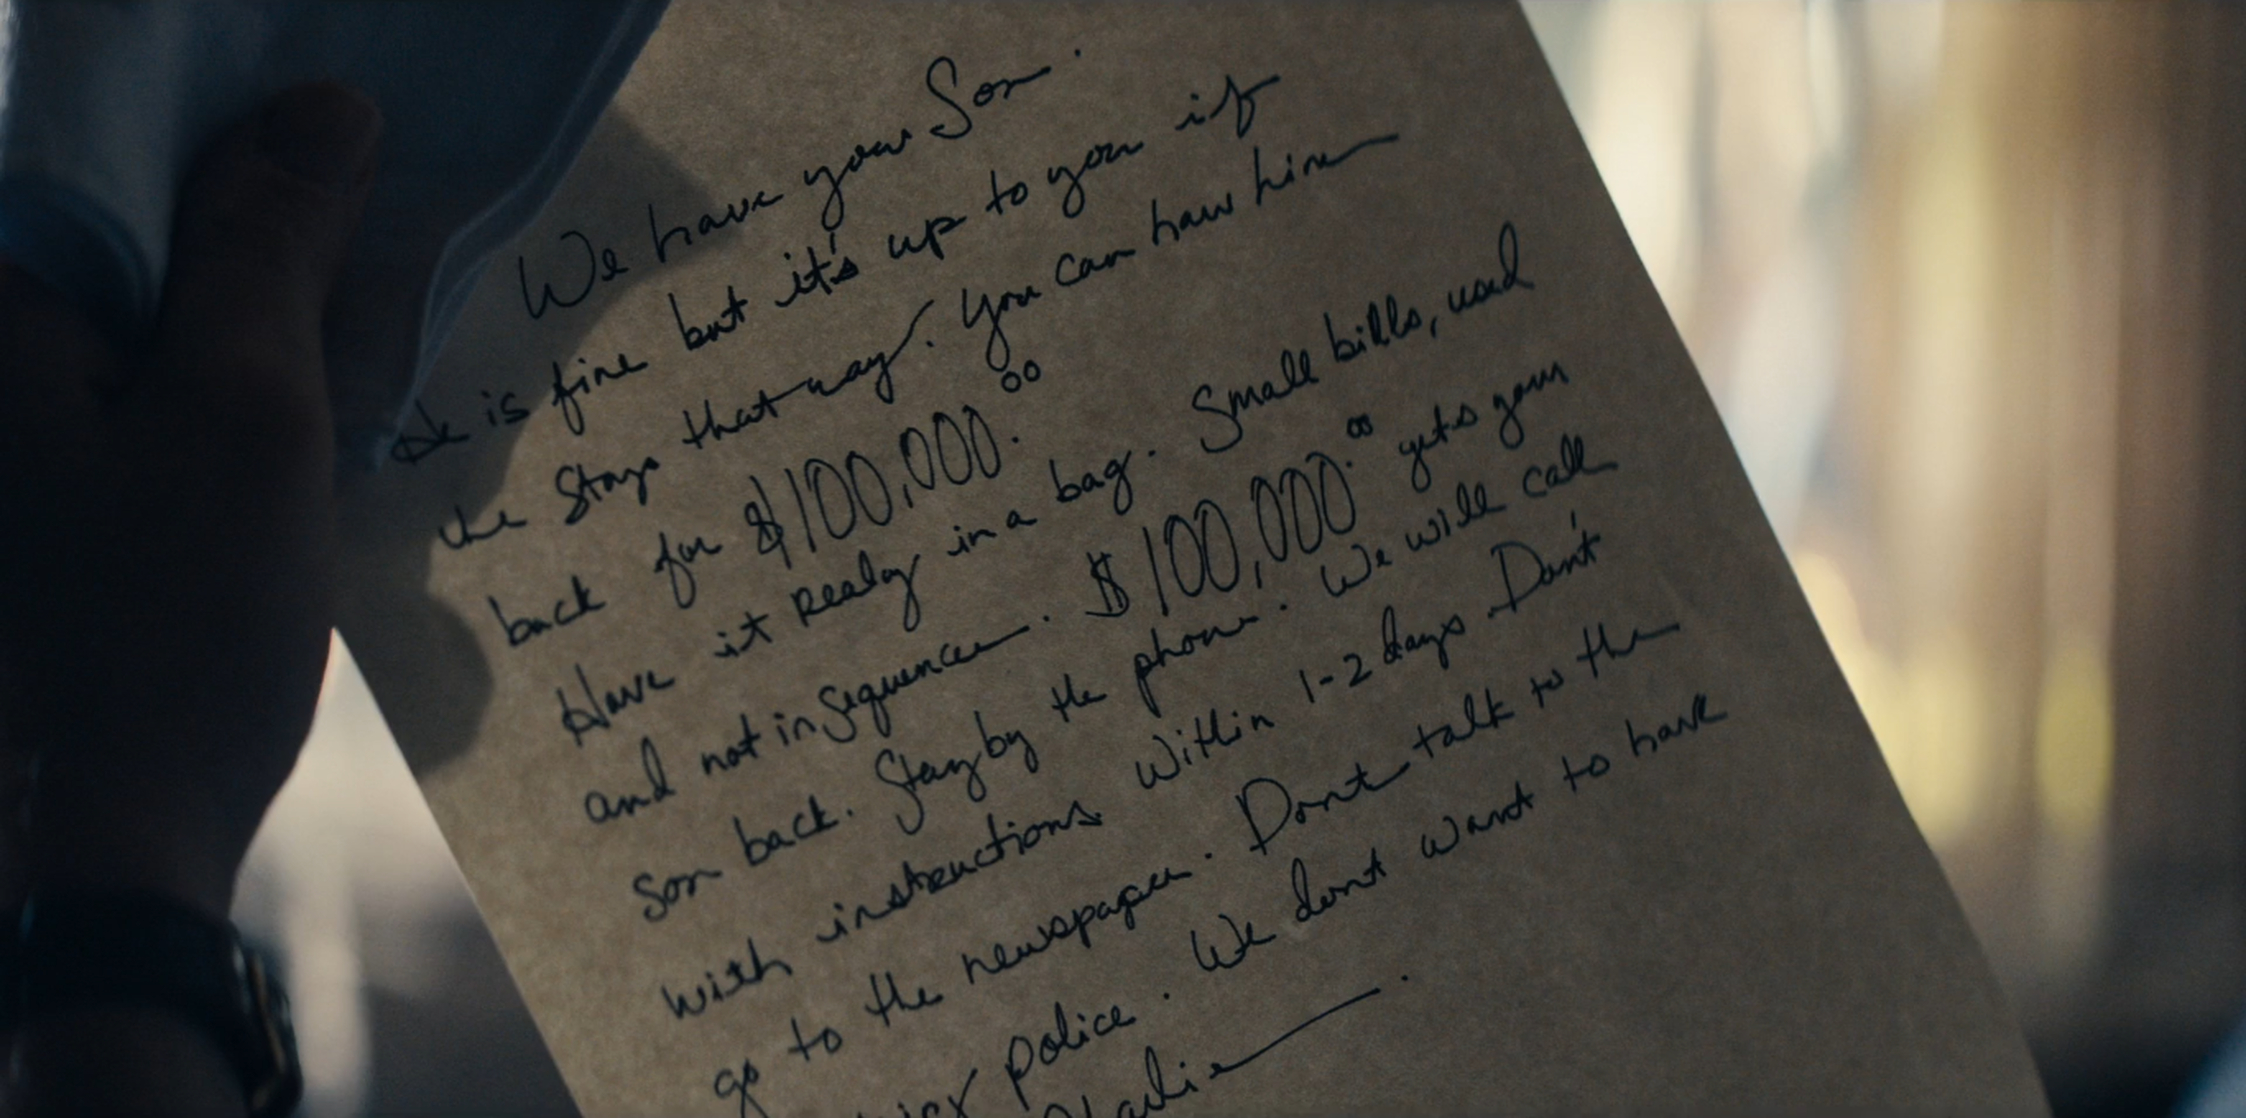 We have your Son.
He is fine but it's up to you if
he Stays that way. You can have him
back for $100,000.00
Have it Ready in a bag. Small bills, used
and not in Sequence. $100,000.00 gets your
Son back. Stay by the phone. We will call
with instructions within 1-2 days. Don't
go to the newspaper. Dont talk to the
police. We dont want to have